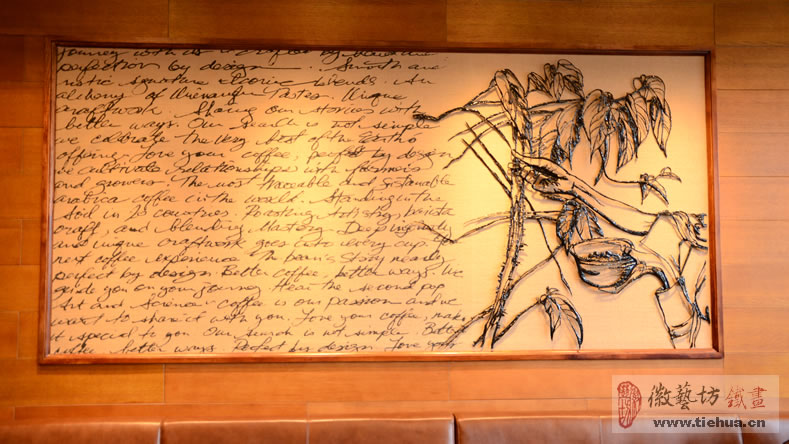 Journey with us
perfection by design. Smooth and
rustic signature Blends. An
alchemy of Tastes. Unique
craftwork. Sharing our stories with
better ways. Our search is not simple
we celebrate the very best of the Earth's
offering. Love your coffee, perfect by design
we cultivate relationships with farmers
and growers. The most traceable and sustainable
arabica coffee in the world. Standing in the
soil in 20 countries. Roasting Artistry, barista
craft and Blending Mastery. Deep ingenuity
and unique craftwork goes into every cup. The
next coffee experience. The bean's story nearly
perfect by design. Better coffee, better ways. We
guide you on your journey. Hear the second pop
Art and Science. Coffee is our passion and we
want to share it with you. Love your coffee, make
it special to you. Our search is not simple. Better
better ways. Perfect by design. Love your
徽藝坊 鐵畫
www.tiehua.cn